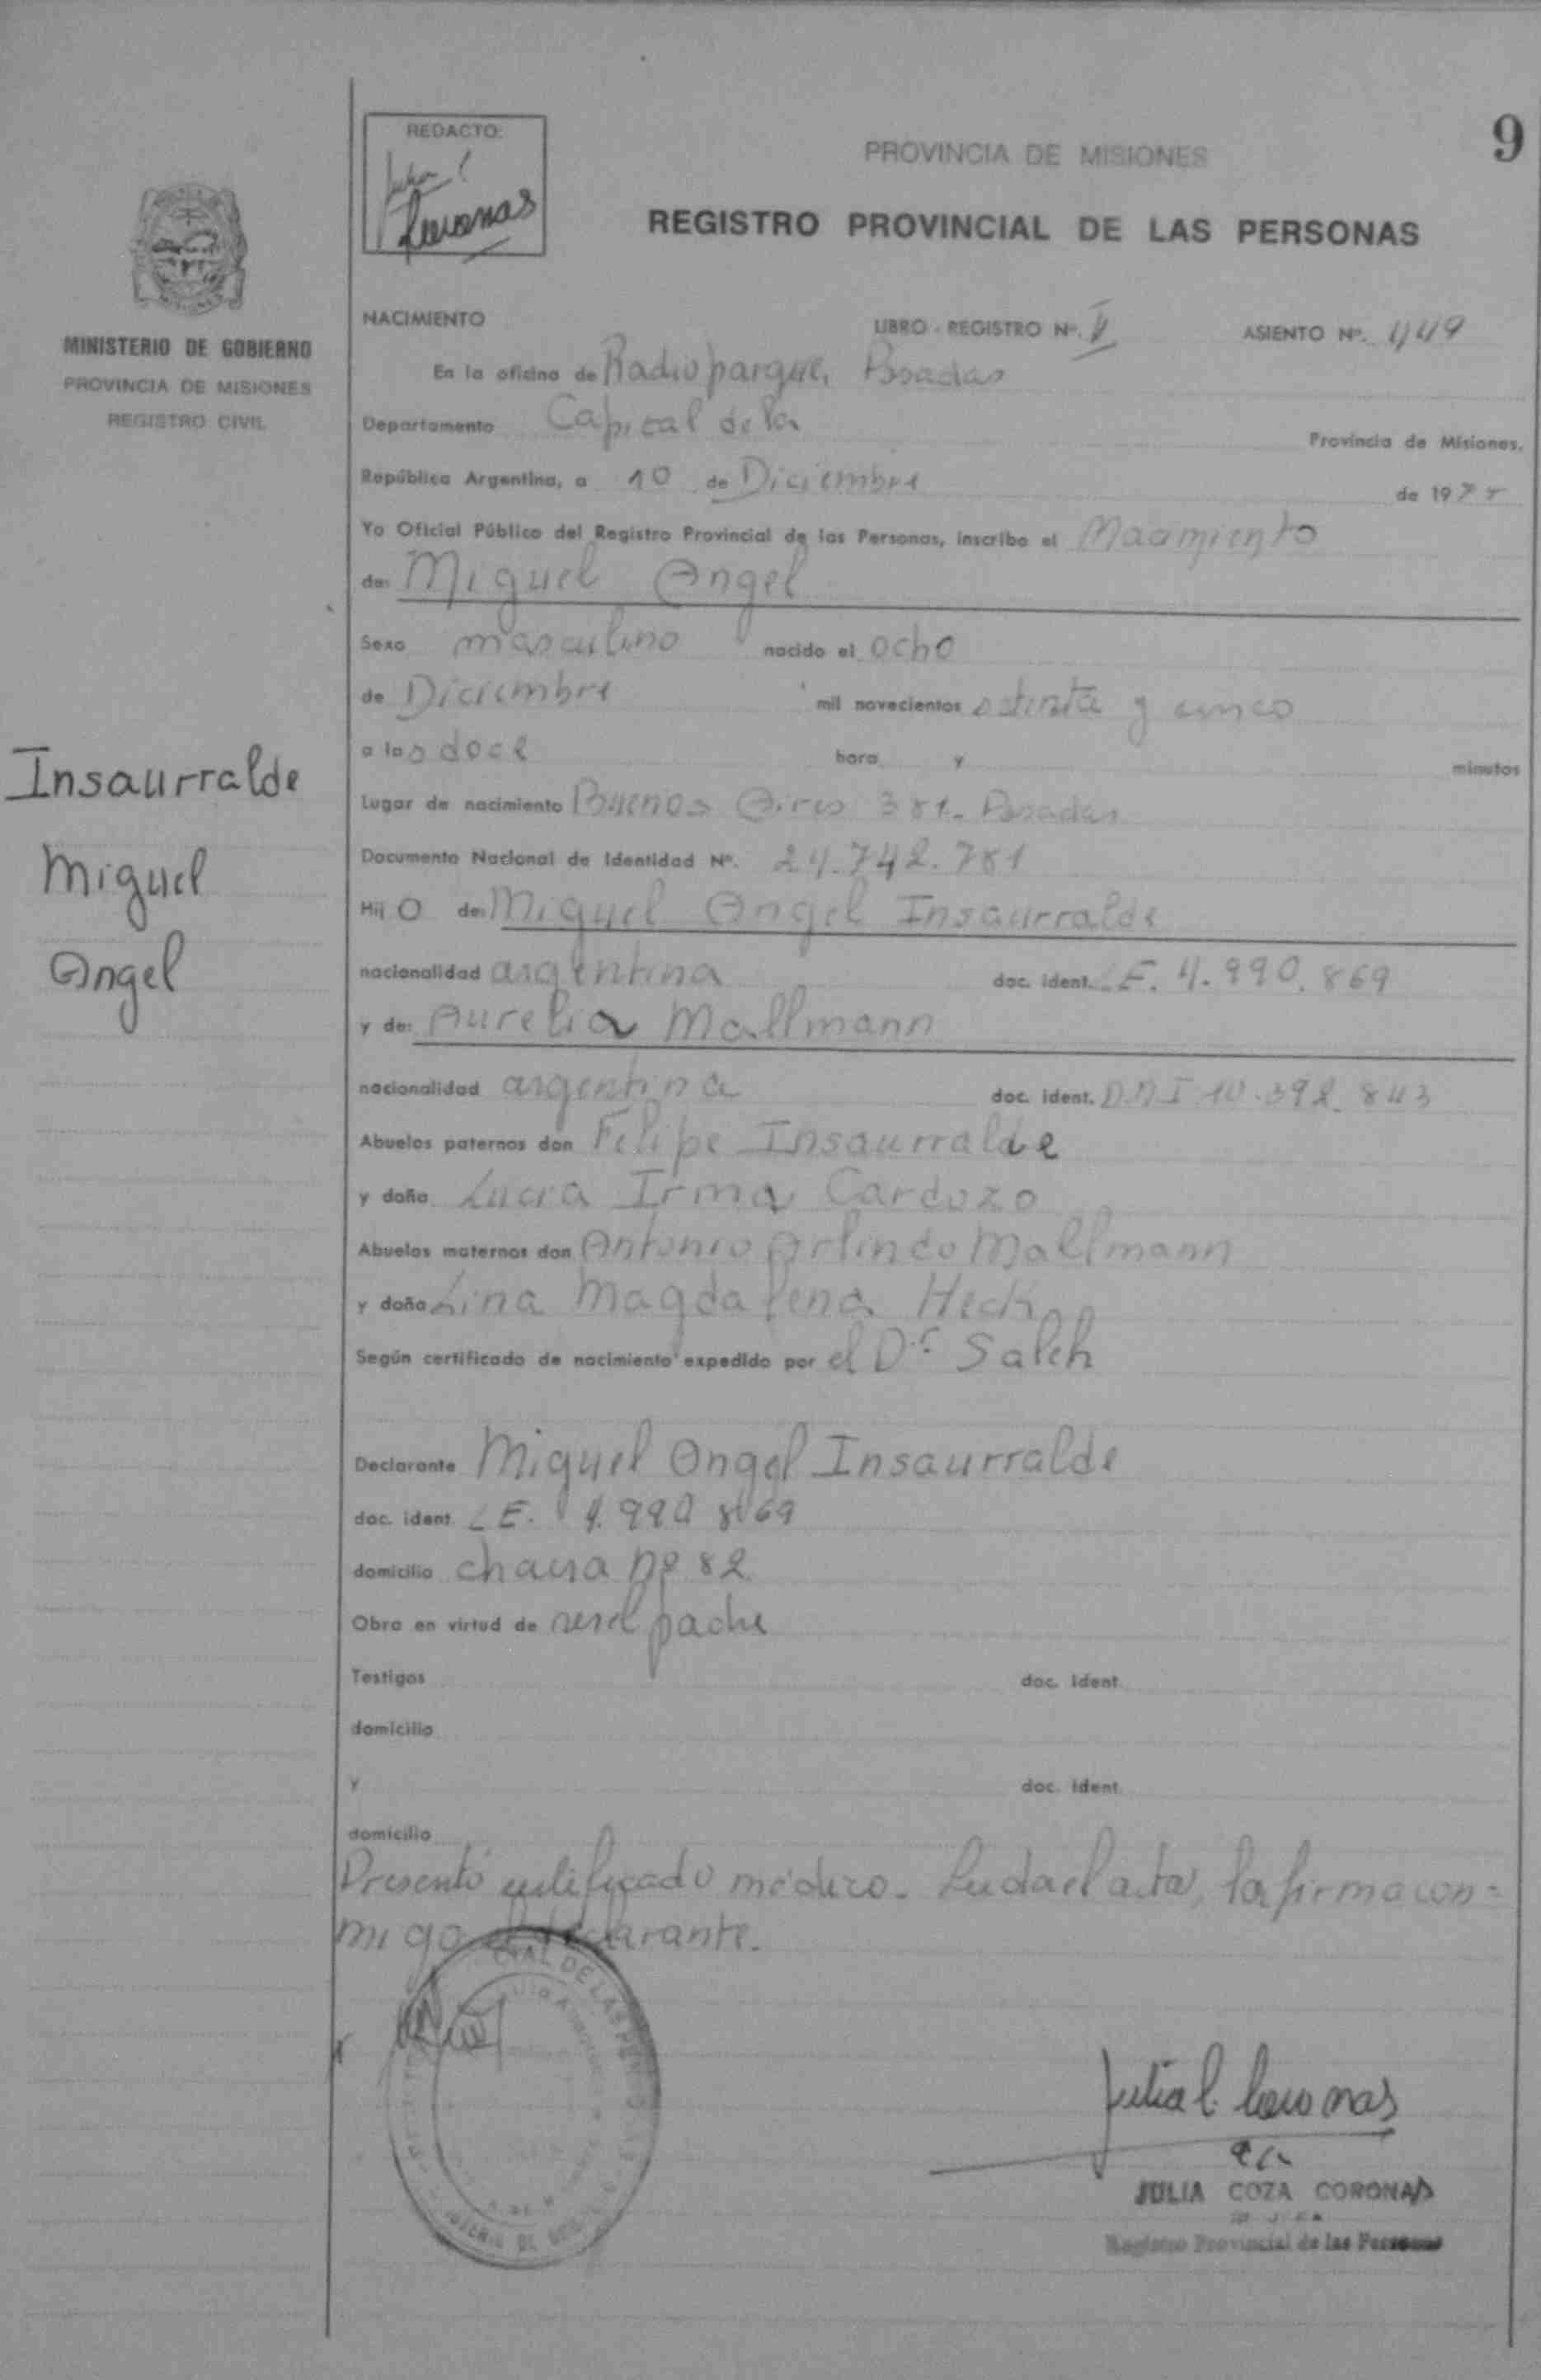 9
REDACTO:
PROVINCIA DE MISIONES
REGISTRO PROVINCIAL DE LAS PERSONAS
MINISTERIO DE GOBIERNO
PROVINCIA DE MISIONES
REGISTRO CIVIL
NACIMIENTO LIBRO - REGISTRO Nº. ASIENTO Nº. 449
En la oficina de Radio parque, Posadas
Departamento Capital de la Provincia de Misiones,
República Argentina, a 10 de Diciembre de 1975
Yo Oficial Público del Registro Provincial de las Personas, inscribo el Nacimiento
de: Miguel Angel
Sexo masculino nacido el ocho
de Diciembre mil novecientos setenta y cinco
a las doce hora y minutos
Insaurralde
Miguel
Angel
Lugar de nacimiento Buenos Aires 381. Posadas
Documento Nacional de Identidad Nº. 24.742.781
Hijo de: Miguel Angel Insaurralde
nacionalidad argentina doc. ident. L.E. 4.990.869
y de: Aurelia Mallmann
nacionalidad argentina doc. ident. D.N.I 10.392.843
Abuelos paternos don Felipe Insaurralde
y doña Lucia Irma Cardozo
Abuelos maternos don Antonio Arlindo Mallmann
y doña Lina Magdalena Heck
Según certificado de nacimiento expedido por el Dr Saleh
Declarante Miguel Angel Insaurralde
doc. ident. L E. 4.990 869
domicilio chacra nº 82
Obra en virtud de ser el padre
Testigos doc. ident.
domicilio
y doc. ident.
domicilio
Presentó certificado médico. Leida el acta, la firma con=
migo el declarante.
Julia C. Coronas
JULIA COZA CORONAS
Registro Provincial de las Personas